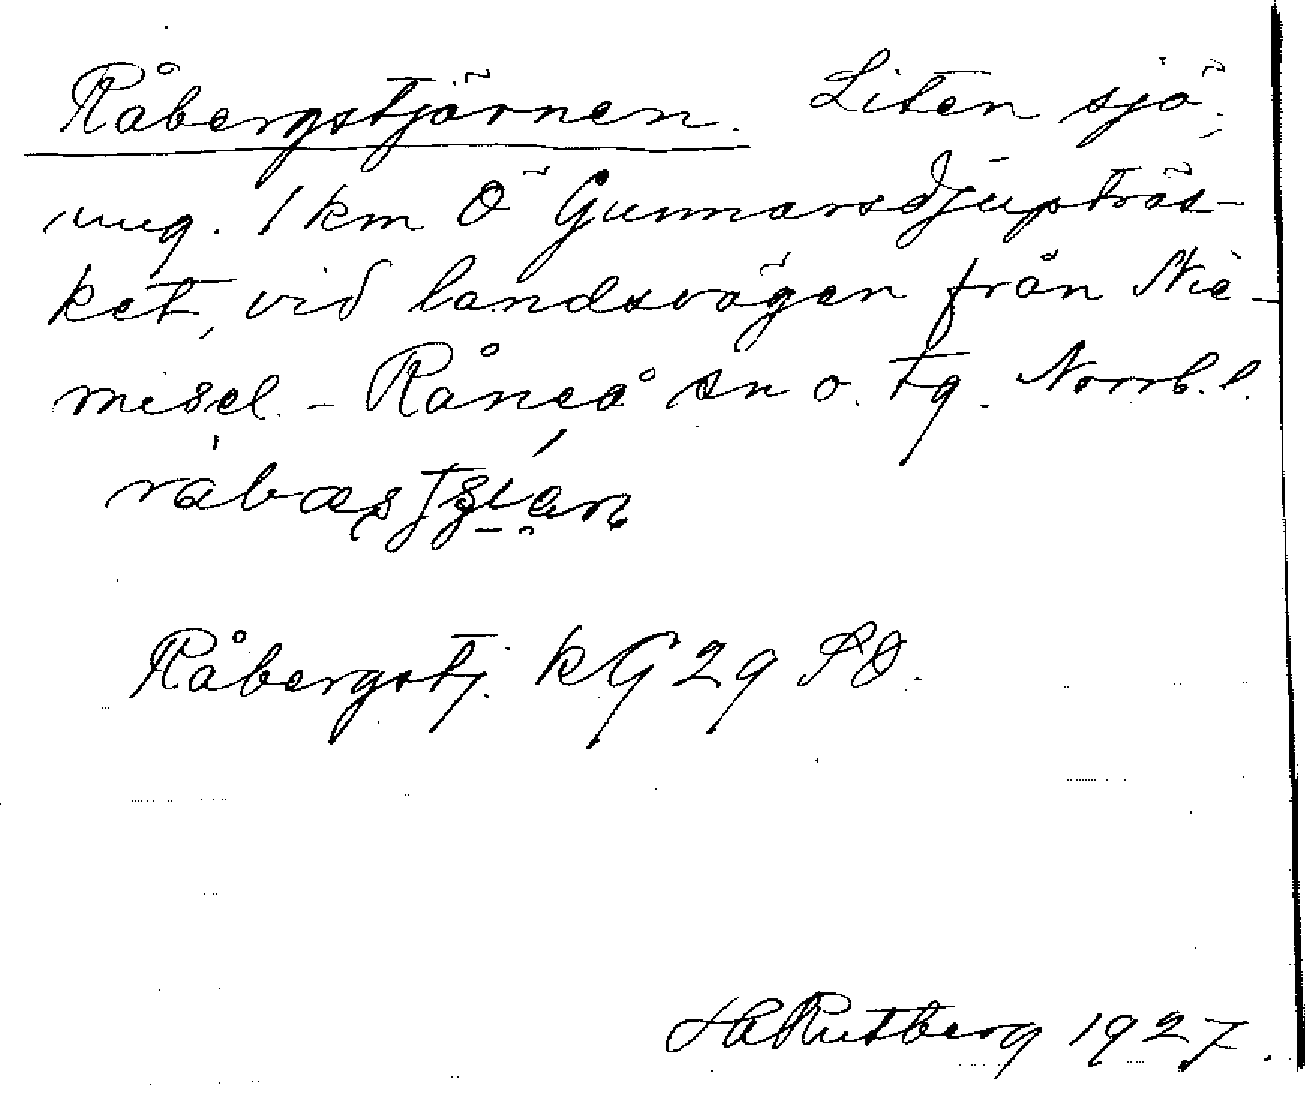 Råbergstjärnen. Liten sjö,
ung. 1 km Ö Gunnarsdjupträs-
ket, vid landsvägen från Nie-
misel. - Råneå sn o. tg. Norrb. l.
Råbergstj. k G 29 SO.
H Rutberg 1927.